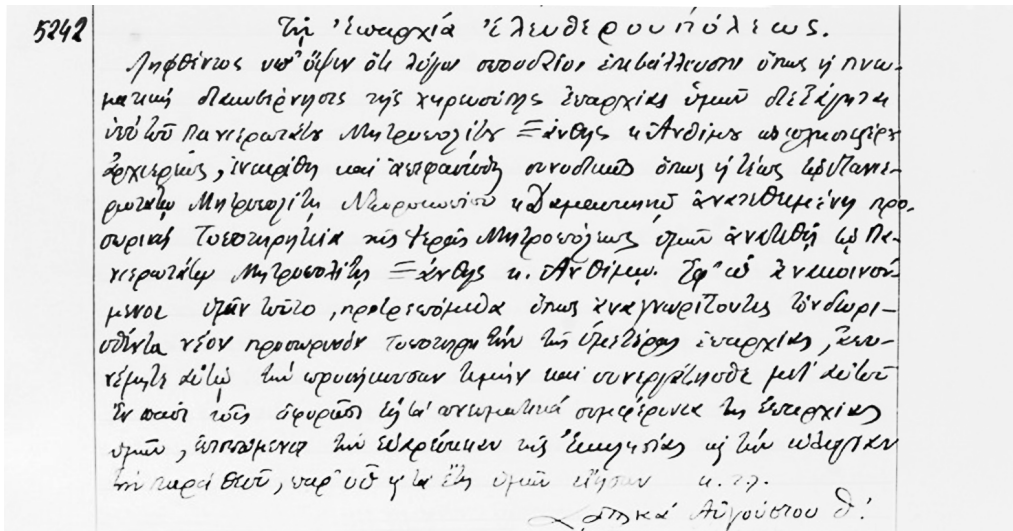 5242
Τῇ Ἐπαρχίᾳ Ἐλευθερουπόλεως.
Ληφθέντος ὑπ' ὄψιν ὅτι λόγοι σπουδαῖοι ἐπιβάλλουσιν ὅπως ἡ πνευ-
ματικὴ διακυβέρνησις τῆς χηρευούσης Ἐπαρχίας ὑμῶν διεξάγηται
ὑπὸ τοῦ Πανιερωτάτου Μητροπολίτου Ξάνθης κ. Ἀνθίμου
ἀρχιερέως, ἐνεκρίθη καὶ ἀπεφασίσθη συνοδικῶς ὅπως ἡ τέως τῷ Πανιε-
ρωτάτῳ Μητροπολίτῃ Νευροκοπίου κ. Δαμασκηνῷ ἀνατεθειμένη προ-
σωρινὴ Τοποτηρητεία τῆς Ἱερᾶς Μητροπόλεως ὑμῶν ἀνατεθῇ τῷ Πα-
νιερωτάτῳ Μητροπολίτῃ Ξάνθης κ. Ἀνθίμῳ. Ἐφ' ᾧ ἀνακοινού-
μενοι ὑμῖν τοῦτο, προτρεπόμεθα ὅπως ἀναγνωρίζοντες τὸν διορι-
σθέντα νέον προσωρινὸν Τοποτηρητὴν τῆς ὑμετέρας ἐπαρχίας, ἀπο-
νέμητε αὐτῷ τὴν προσήκουσαν τιμὴν καὶ συνεργάζησθε μετ' αὐτοῦ
ἐν πᾶσι τοῖς ἀφορῶσι εἰς τὰ πνευματικὰ συμφέροντα τῆς Ἐπαρχίας
ὑμῶν, τὴν εὐαρέσκειαν τῆς Ἐκκλησίας κ τὴν εὐλογίαν
τὴν παρὰ Θεοῦ, παρ' οὗ κ τὰ ἔτη ὑμῶν εἴησαν κ.τ.λ.
Αὐγούστου θ'.